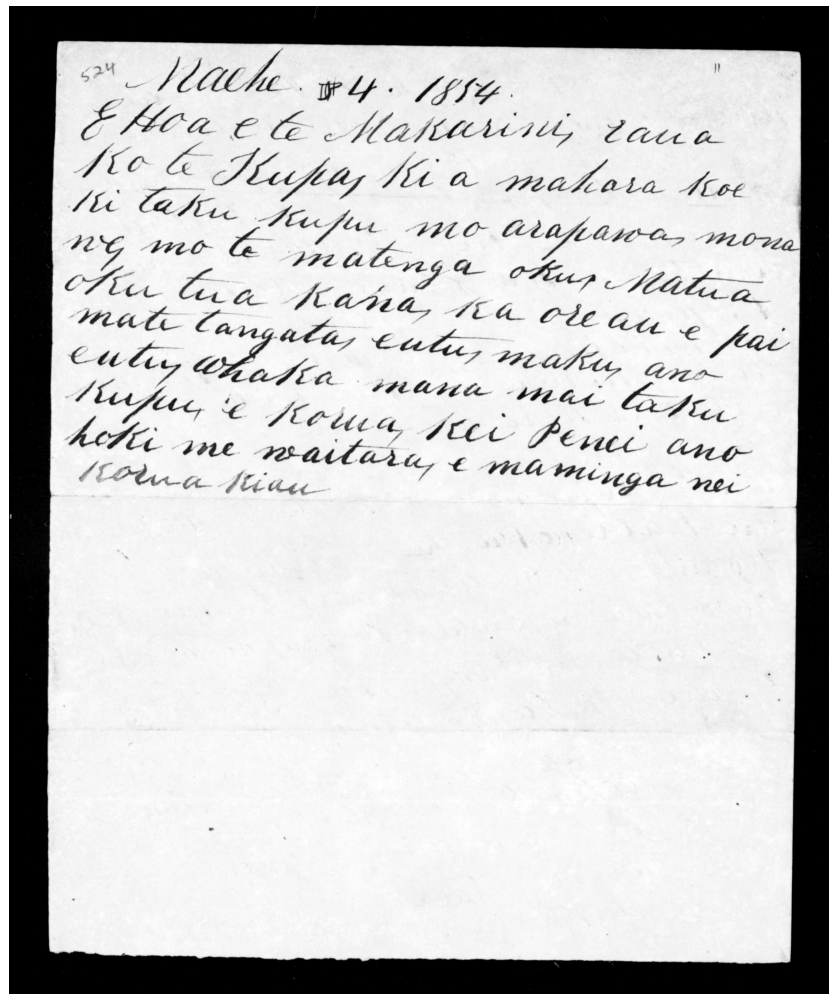 524
Maehe. 4. 1854.
E Hoa e te Makarini, raua
Ko te Kupa, Ki a mahara Koe
Ki taku Kupu mo arapawa, mona
no, mo te matenga oku, Matua
oku tua Kana, Ka ore au e pai
mate tangata, eutu, maku, ano
eutu, whaka mana mai taku
Kupu, e Korua, Kei Penei ano
hoki me waitara, e maminga nei
Korua kiau